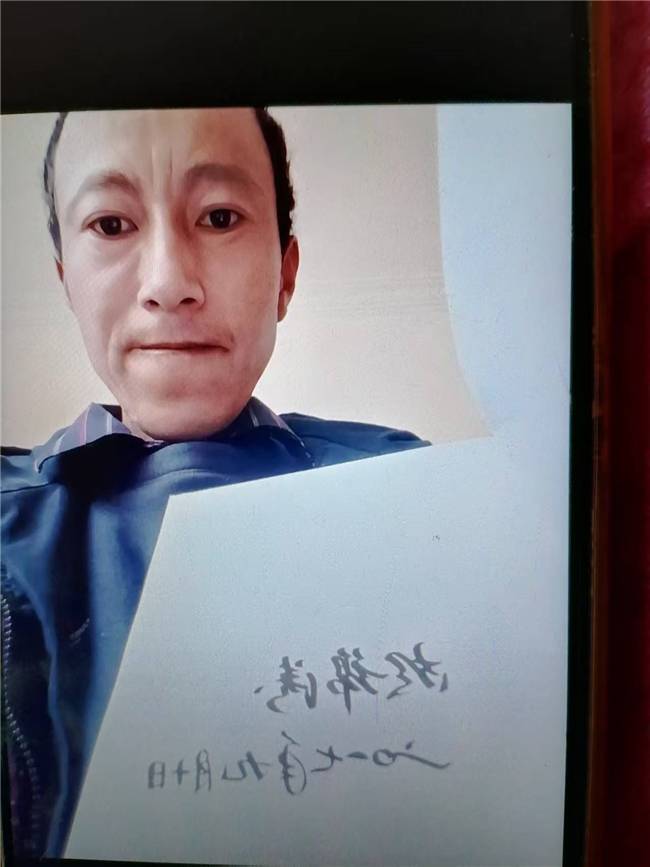 锦涛
二〇一七年九月十日